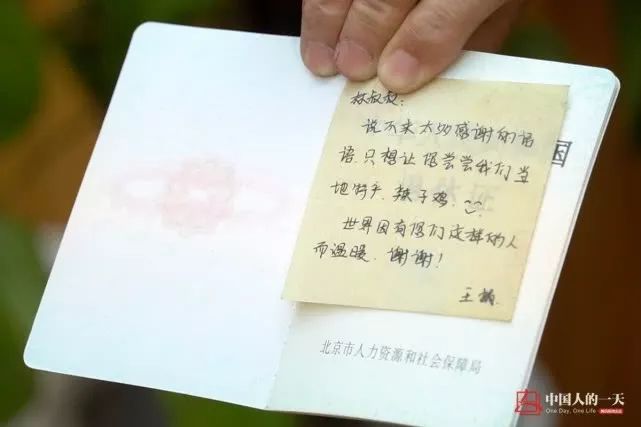 林叔叔:
说不来太多感谢的话
语,只想让您尝尝我们当
地特产,辣子鸡.
世界因有你们这样的人
而温暖.谢谢!
王
国
北京市人力资源和社会保障局
中国人的一天
One Day, One Life